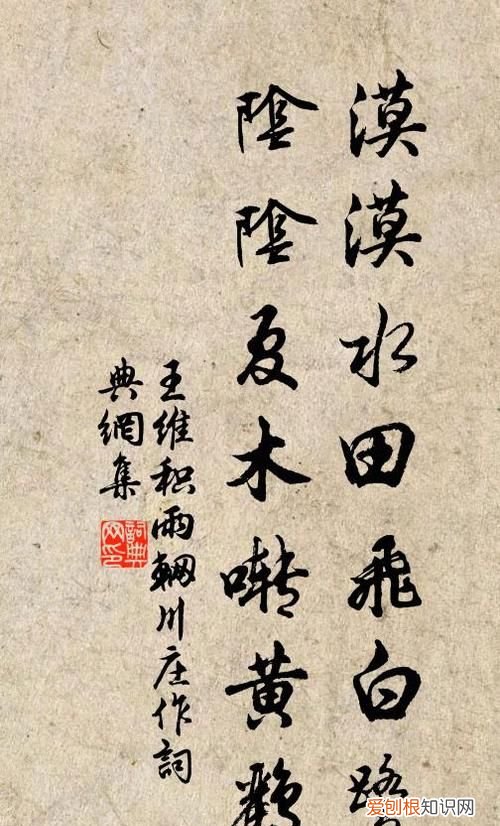 漠漠水田飛白鷺
陰陰夏木囀黃鸝
王維积雨輞川庄作詞
典網集
詞典网印
爱刨根知识网